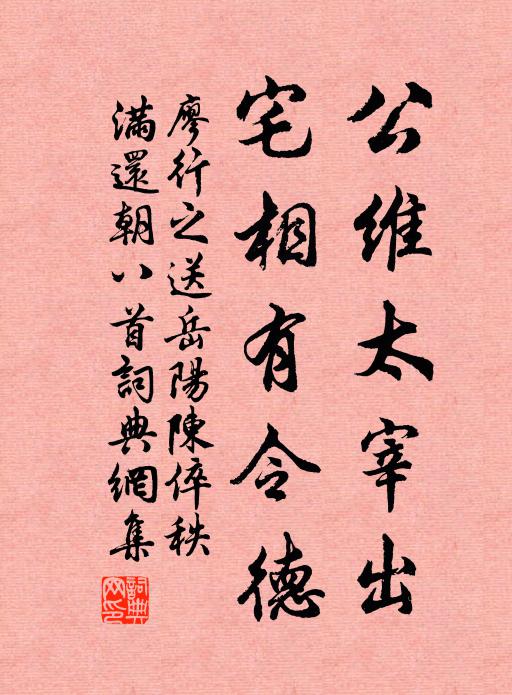 公維太宰出
宅相有令德
廖行之送岳陽陳倅秩
滿還朝八首詞典網集
詞典網印